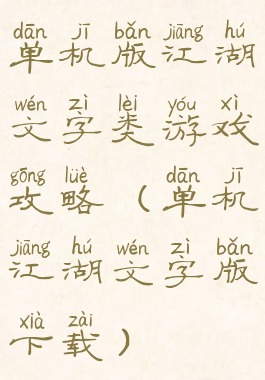 dān jī bǎn jiāng hú
单机版江湖
wén zì lèi yóu xì
文字类游戏
gōng lüè dān jī
攻略（单机
jiāng hú wén zì bǎn
江湖文字版
xià zài
下载）